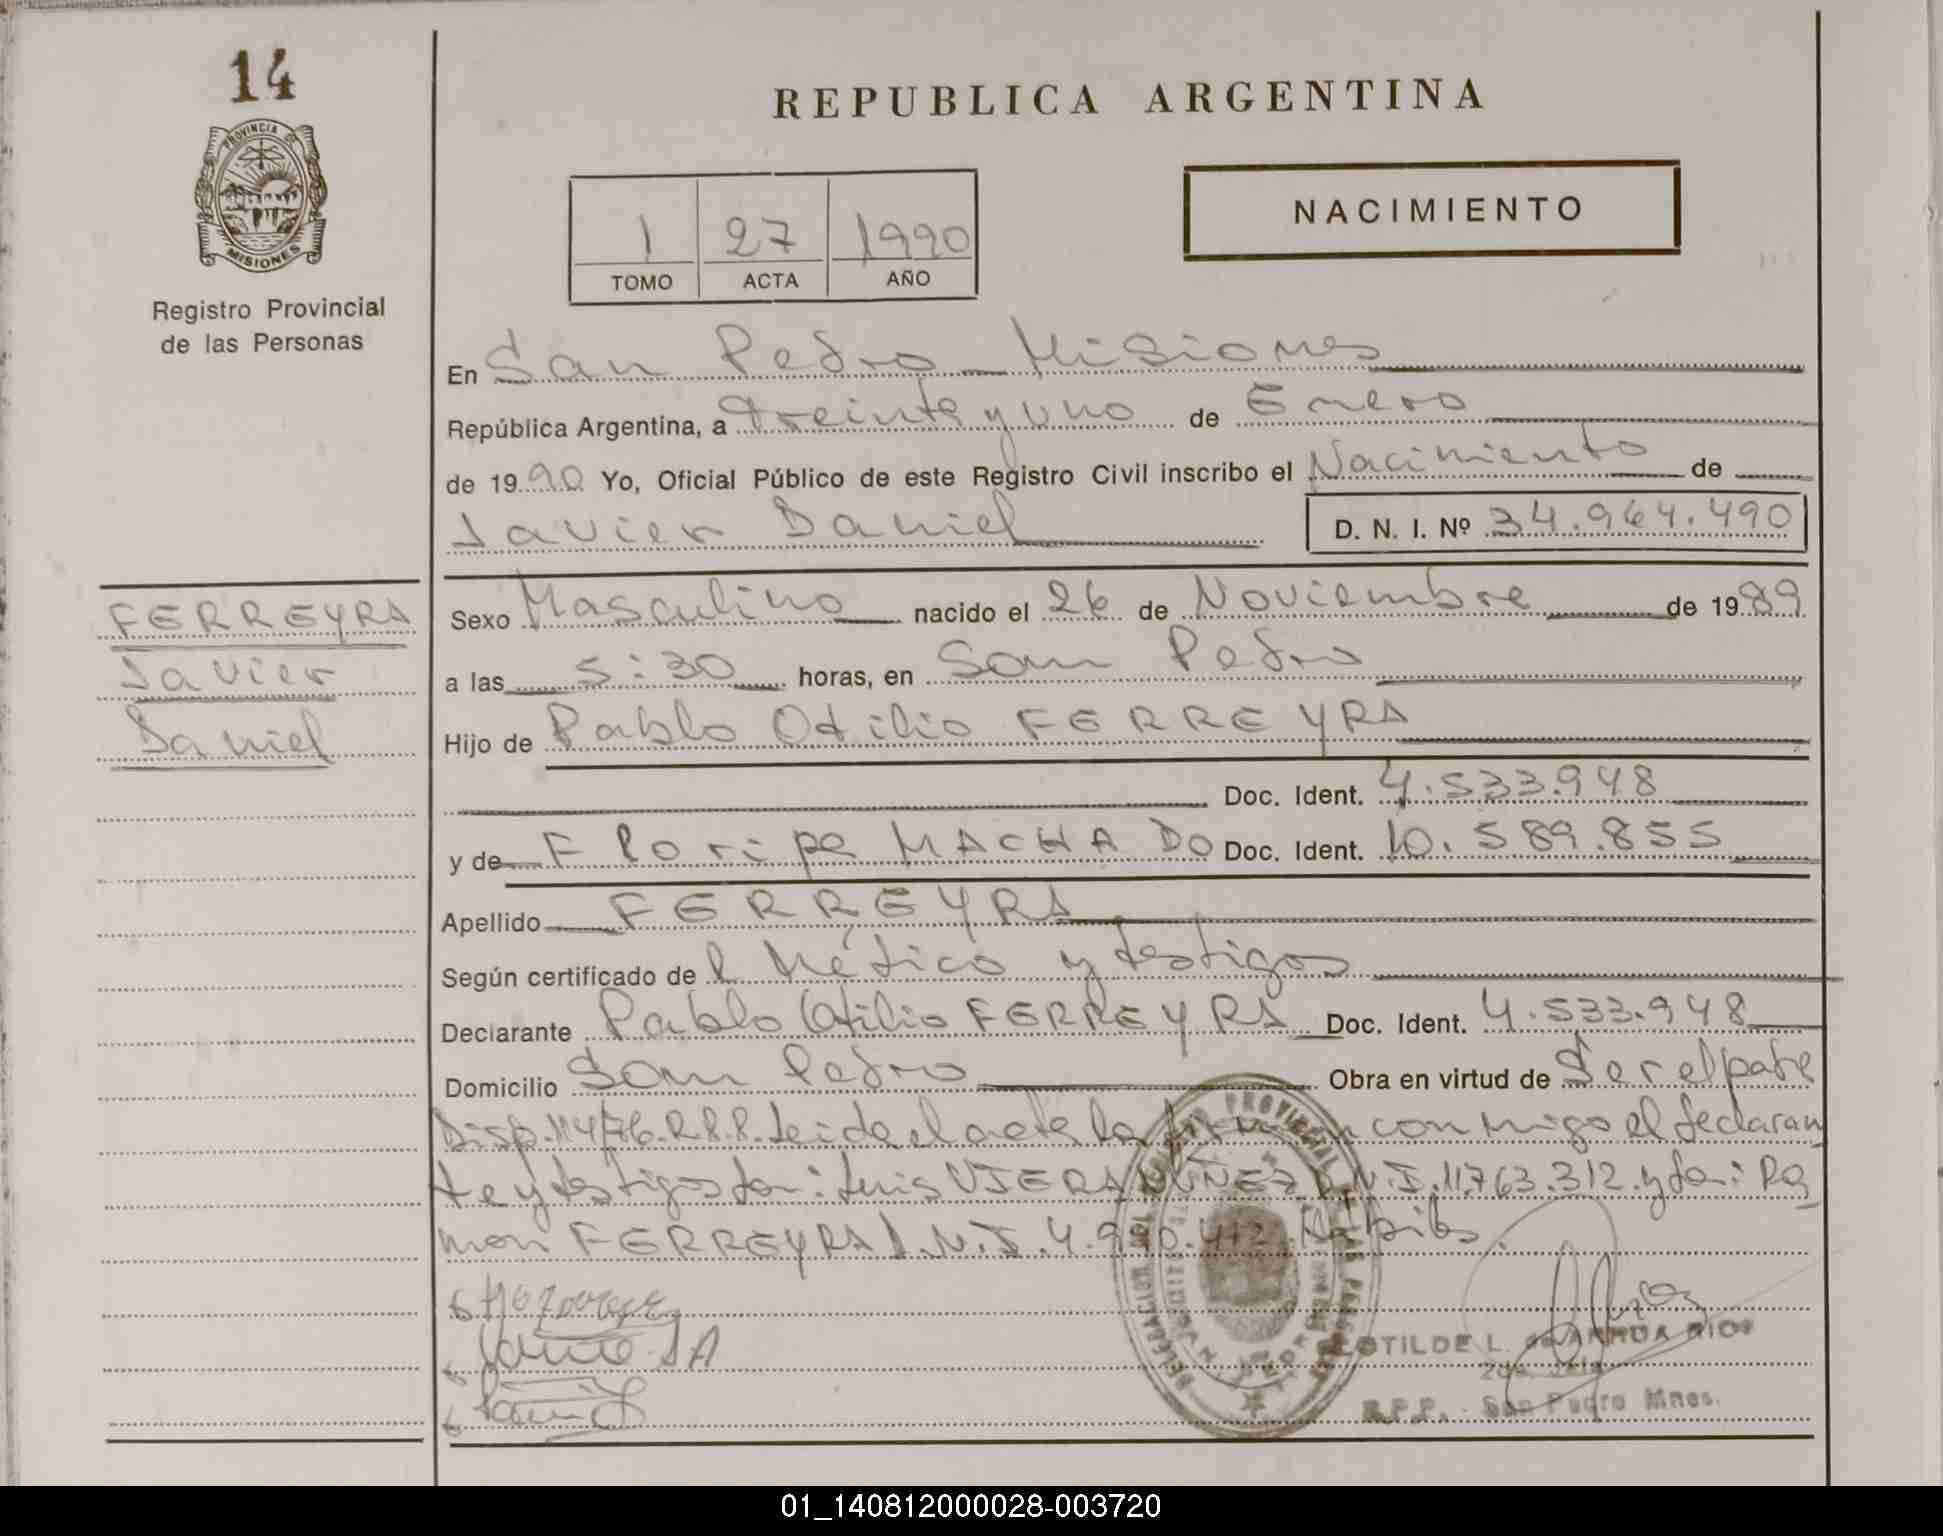 14
PROVINCIA DE
MISIONES
Registro Provincial
de las Personas
REPUBLICA ARGENTINA
NACIMIENTO
1 27 1990
TOMO ACTA AÑO
En San Pedro Misiones
República Argentina, a treinta y uno de Enero
de 1990 Yo, Oficial Público de este Registro Civil inscribo el Nacimiento de
Javier Daniel D. N. I. Nº 34.964.490
FERREYRA
Javier
Daniel
Sexo Masculino nacido el 26 de Noviembre de 1989
a las 5:30 horas, en San Pedro
Hijo de Pablo Otilio FERREYRA
Doc. Ident. 4.533.948
y de Floripa MACHADO Doc. Ident. 10.589.855
Apellido FERREYRA
Según certificado del Médico y testigos
Declarante Pablo Otilio FERREYRA Doc. Ident. 4.533.948
Domicilio San Pedro Obra en virtud de Ser el padre
Disp. 114/76. Leida el acta la firman conmigo el declaran
te y testigos don: Luis VIERA NUÑEZ D.N.I. 11.763.312. y don: Ra
mon FERREYRA D.N.I. 4.940.412.
CLOTILDE L. RIOS
R.P.P. San Pedro Mnes.
01_140812000028-003720